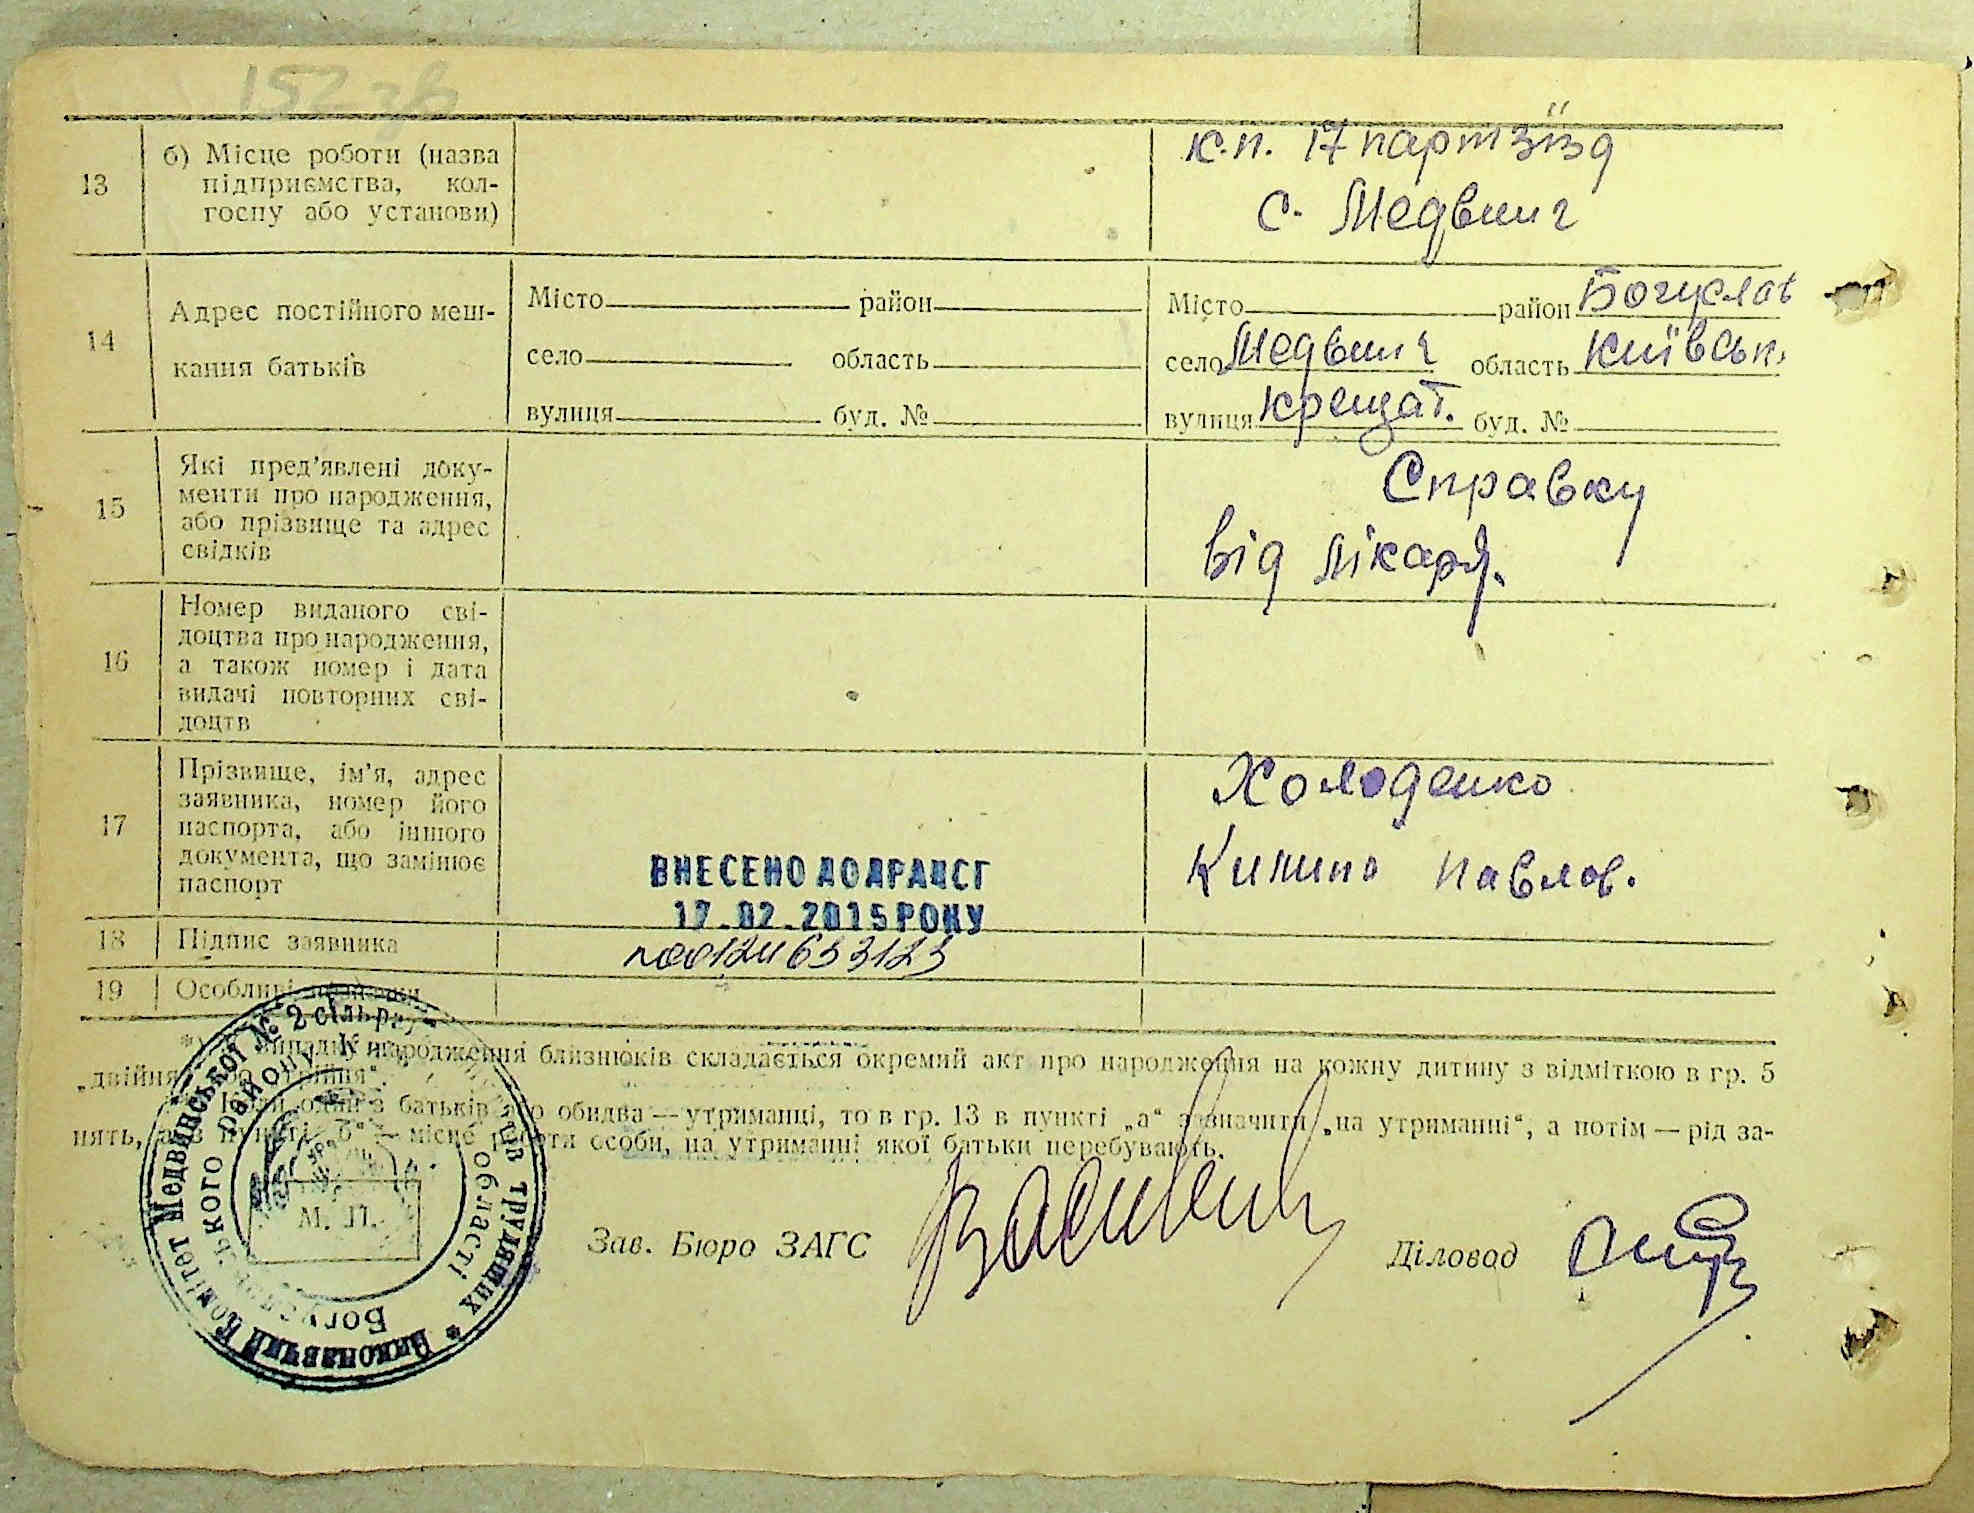 152 зв
13
б) Місце роботи (назва
підприємства, кол-
госпу або установи)
к.п. 17 партзїзд
с. Медвин
14
Адрес постійного меш-
кання батьків
Місто район
село область
вулиця буд. №
Місто район Богуслав
село Медвин область Київськ.
вулиця Крещат. буд. №
15
Які пред’явлені доку-
менти про народження,
або прізвище та адрес
свідків
Справку
від лікаря.
16
Номер виданого сві-
доцтва про народження,
а також номер і дата
видачі повторних сві-
доцтв
17
Прізвище, ім’я, адрес
заявника, номер його
паспорта, або іншого
документа, що замінює
паспорт
Холоденко
Килина Павлов.
ВНЕСЕНО ДО ДРАЦСГ
17.02.2015 РОКУ
18
Підпис заявника
19
Особливі
*) випадку народження близнюків складається окремий акт про народження на кожну дитину з відміткою в гр. 5
„двійня“ або „трійня“.
Коли один з батьків або обидва — утриманці, то в гр. 13 в пункті „а“ зазначити „на утриманні“, а потім — рід за-
нять, а в пункті „б“ — місце роботи особи, на утриманні якої батьки перебувають.
М. П.
Зав. Бюро ЗАГС
Діловод
Виконавчий Комітет Медвинської № 2 сільради трудящих *
Богуславського району області